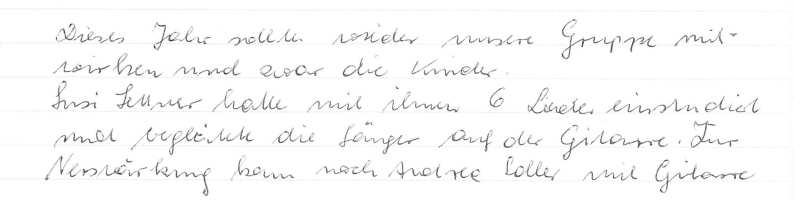 Dieses Jahr sollte wieder unsere Gruppe mit-
wirken und zwar die Kinder.
Susi hatte mit ihnen 6 Lieder einstudiert
und begleitete die Sänger auf der Gitarre. Zur
Verstärkung kam noch Andrea mit Gitarre